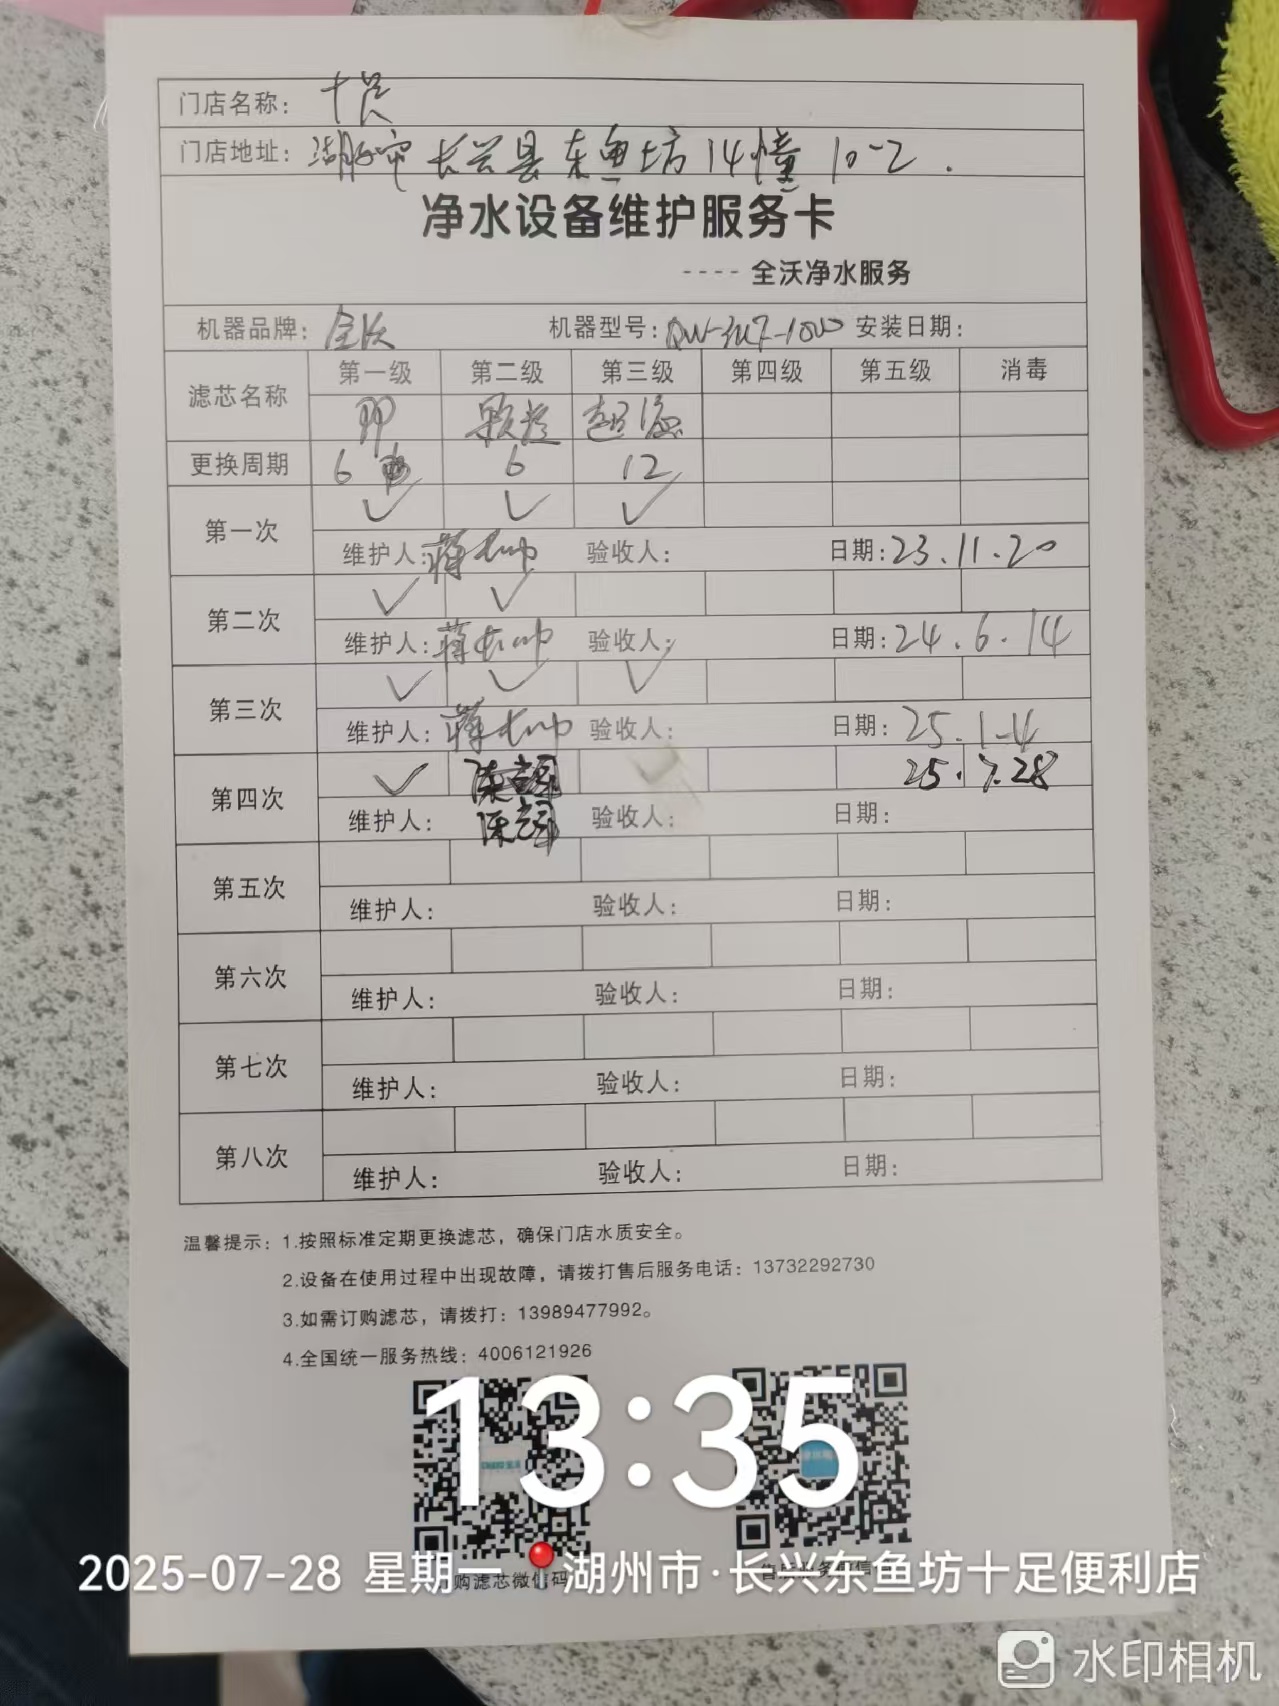 门店名称： 十足
门店地址： 湖州市 长兴县 东鱼坊 14幢 10-2.
净水设备维护服务卡
---- 全沃净水服务
机器品牌： 全沃 机器型号： 安装日期：
滤芯名称 第一级 第二级 第三级 第四级 第五级 消毒
PP 颗炭 超滤
更换周期 6 6 12
第一次 ✓ ✓ ✓
维护人： 验收人： 日期：23.11.20
第二次 ✓ ✓
维护人： 验收人： 日期：24.6.14
第三次 ✓ ✓ ✓
维护人： 验收人： 日期：25.1.4
第四次 ✓ 25.7.28
维护人： 验收人： 日期：
第五次
维护人： 验收人： 日期：
第六次
维护人： 验收人： 日期：
第七次
维护人： 验收人： 日期：
第八次
维护人： 验收人： 日期：
温馨提示：1.按照标准定期更换滤芯，确保门店水质安全。
2.设备在使用过程中出现故障，请拨打售后服务电话：13732292730
3.如需订购滤芯，请拨打：13989477992。
4.全国统一服务热线：4006121926
13:35
2025-07-28 星期一 湖州市·长兴东鱼坊十足便利店
购滤芯微信码
水印相机